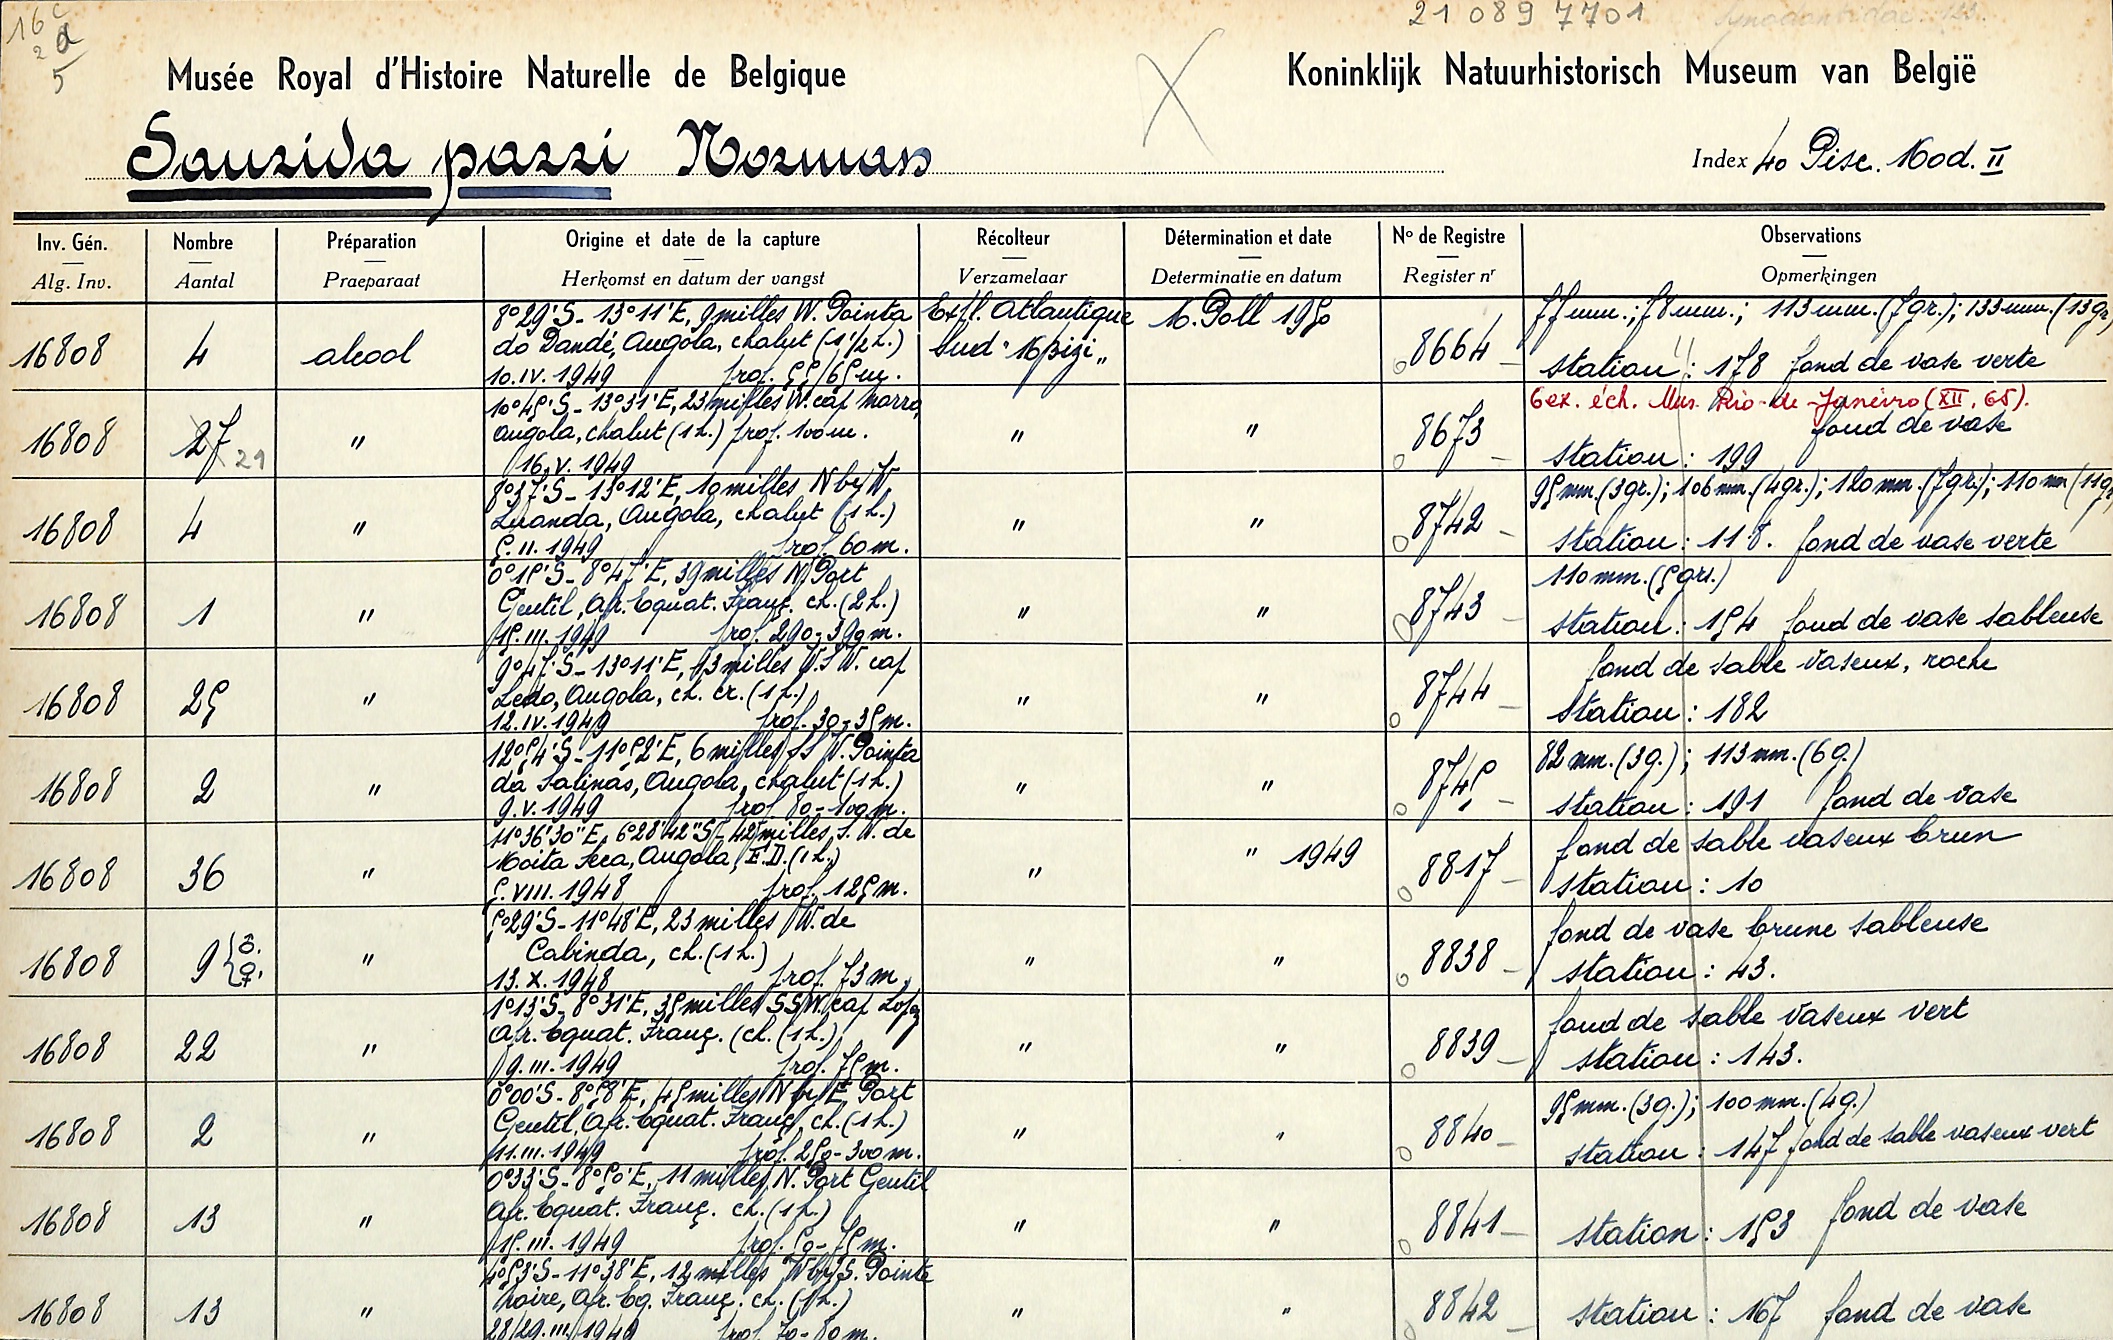 16 c
2 a
5
21 089 7701
Synodontidae. 123.
Musée Royal d'Histoire Naturelle de Belgique
Koninklijk Natuurhistorisch Museum van België
X
Saurida parri Norman
Index 40 Pisc. Mod. II
Inv. Gén. Nombre Préparation Origine et date de la capture Récolteur Détermination et date No de Registre Observations
Alg. Inv. Aantal Praeparaat Herkomst en datum der vangst Verzamelaar Determinatie en datum Register nr Opmerkingen
8°29'S - 13°11'E, 9 milles W. Pointa Expl. Atlantique M. Poll 1950 77 mm.; 78 mm.; 113 mm. (7 gr.); 133 mm. (13 gr.)
16808 4 alcool do Dandé, Angola, chalut (1 1/2 h.) Sud "Mbizi" 8664 - station : 178 fond de vase verte
10.IV.1949 prof. 55/65 m.
10°45'S - 13°31'E, 23 milles W. cap Morro, 6 ex. éch. Mus. Rio-de-Janeiro (XII, 65).
16808 27 21 " Angola, chalut (1 h.) prof. 100 m. " " 8673 - fond de vase
16.V.1949 station : 199
8°37'S - 13°12'E, 10 milles N by W 95 mm. (3 gr.); 106 mm. (4 gr.); 120 mm. (7 gr.); 110 mm (11 gr.
16808 4 " Luanda, Angola, chalut (1 h.) " " 8742 - station : 118. fond de vase verte
5.II.1949 prof 60 m.
0°15'S - 8°47'E, 39 milles N. Port 110 mm. (5 grs.)
16808 1 " Gentil, Afr. Equat. Franç. ch. (2 h.) " " 8743 - station : 154 fond de vase sableuse
15.III.1949 prof. 290-390 m.
9°47'S - 13°11'E, 13 milles W.S W. cap fond de sable vaseux, roche
16808 25 " Ledo, Angola, ch. cr. (1 h.) " " 8744 - station : 182
12.IV.1949 prof. 30-35 m.
12°54'S - 11°52'E, 6 milles SS W. Pointa 82 mm. (3 g.); 113 mm. (6 g.)
16808 2 " da Salinas, Angola, chalut (1 h.) " " 8745 - station : 191 fond de vase
9.V.1949 prof 80-100 m.
11°36'30"E, 6°28'42"S - 42 milles, S. W. de fond de sable vaseux brun
16808 36 " Moita Seca, Angola, F.D. (1 h.) " " 1949 8817 - station : 10
5.VIII.1948 prof. 125 m.
5°29'S - 11°48'E, 23 milles W. de fond de vase brune sableuse
16808 9 { ♂. ♀. " Cabinda, ch. (1 h.) " " 8838 - station : 43.
13.X.1948 prof. 73 m.
1°13'S - 8°31'E, 35 milles SSW. cap Lopez fond de sable vaseux vert
16808 22 " Afr. Equat. Franç. (ch. (1 h.) " " 8839 - station : 143.
9.III.1949 prof. 75 m.
0°00'S - 8°58'E, 45 milles N by E Port 95 mm. (3 g.); 100 mm. (4 g.)
16808 2 " Gentil, Afr. Equat. Franç, ch. (1 h.) " " 8840 - station : 147 fond de sable vaseux vert
11.III.1949 prof. 250-300 m.
0°33'S - 8°50'E, 11 milles N. Port Gentil
16808 13 " Afr. Equat. Franç. ch. (1 h.) " " 8841 - station : 153 fond de vase
15.III.1949 prof. 50-75 m.
4°53'S - 11°38'E, 12 milles W by S. Pointe
16808 13 " Noire, Afr. Eq. Franç. ch. (1 h.) " " 8842 - station : 167 fond de vase
28/29.III.1949 prof 70-80 m.